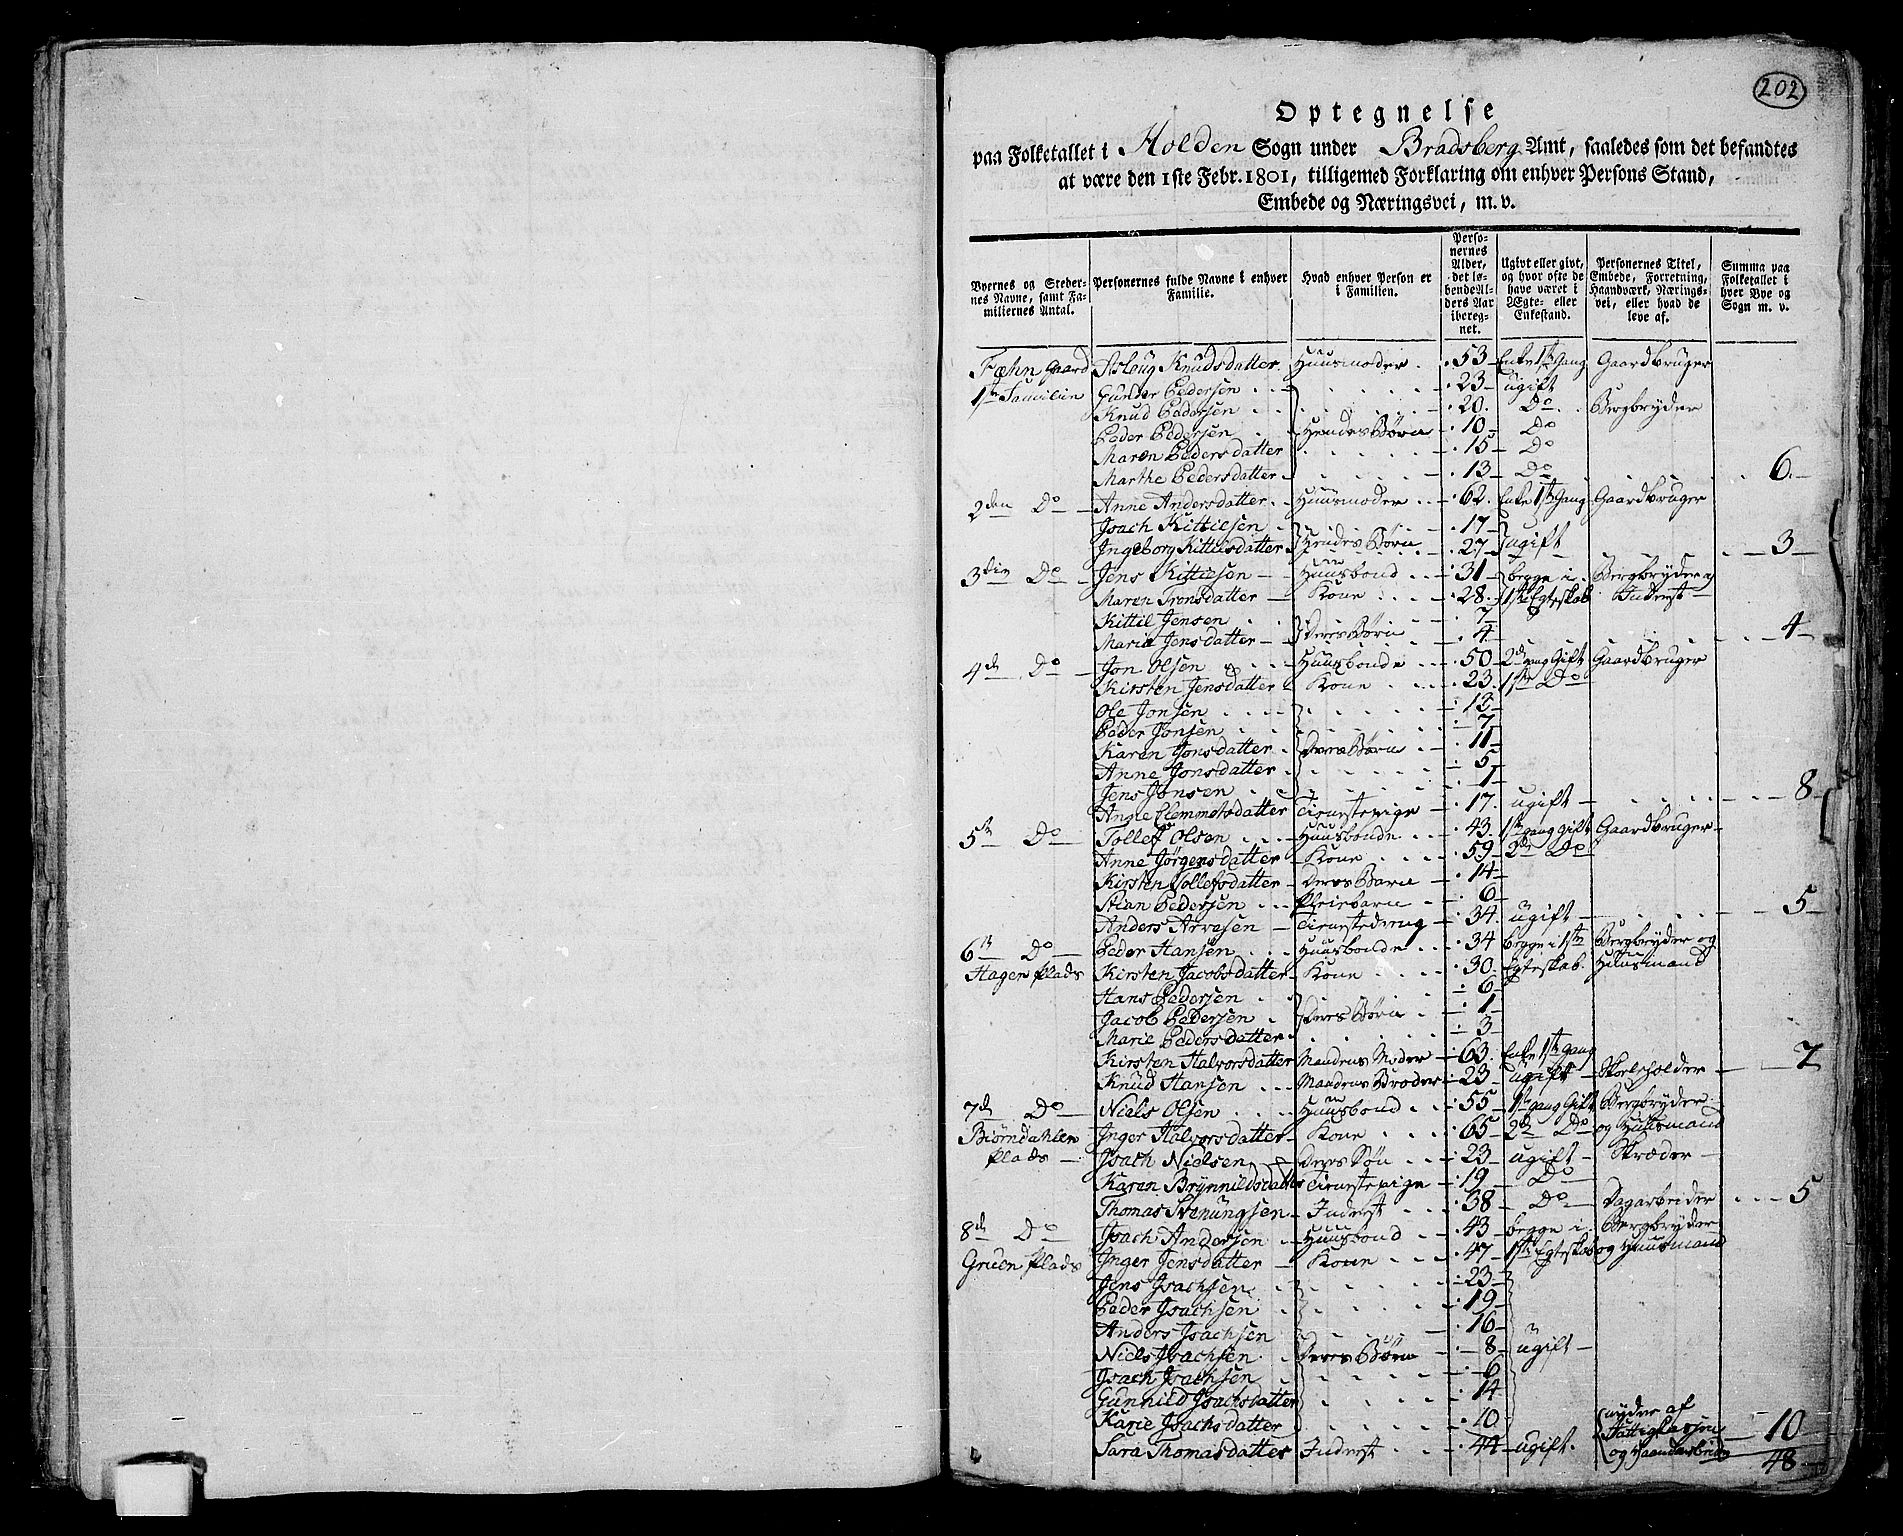 202
Optegnelse
paa Folketallet i Holden Sogn under Bradsberg Amt, saaledes som det befandtes
at være den 1ste Febr. 1801, tilligemed Forklaring om enhver Persons Stand,
Embede og Næringsvei, m. v.
Byernes og Stedernes Navne, samt Familiernes Antal. Personernes fulde Navne i enhver Familie. Hvad enhver Person er i Familien. Personernes Alder, det løbende Alders Aar iberegnet. Ugivt eller givt, og hvor ofte de have været i Ægte- eller Enkestand. Personernes Titel, Embede, Forretning, Haandværk, Næringsvei, eller hvad de leve af. Summa paa Folketallet i hver Bye og Sogn m. v.
Fæhn Gaard Asloug Knudsdatter Huusmoder 53 Enke 1ste Gang Gaardbruger
1ste Familien Gunder Pedersen 23 ugift
Knud Pedersen 20 Do Bergbryder
Peder Pedersen Hendes Børn 10 Do
Maren Pedersdatter 15 Do
Marthe Pedersdatter 13 Do 6
2den Do Anne Andersdatter Huusmoder 62 Enke 1ste Gang Gaardbruger
Isach Kittilsen 17
Ingeborg Kittilsdatter Hendes Børn 27 ugift 3
3die Do Jens Kittilsen Huusbond 31 begge i Bergbryder og
Maren Tronsdatter Kone 28 1ste Egteskab Inderst
Kittil Jensen 7
Marie Jensdatter Deres Børn 4 4
4de Do Jon Olsen Huusbonde 50 2den gang Gift Gaardbruger
Kirsten Jensdatter Kone 23 1ste Do
Ole Jonsen 13
Peder Jonsen 7
Karen Jonsdatter Deres Børn 11
Anne Jonsdatter 5
Jens Jonsen 1
Anne Clemmetsdatter Tienestepige 17 ugift 8
5te Do Tollef Olsen Huusbonde 43 1ste gang Gift Gaardbruger
Anne Jørgensdatter Kone 59 2den Do
Kirsten Tollefsdatter Deres Barn 14
Stian Pedersen Pleiebarn 6
Anders Arvesen Tienestedreng 34 ugift 5
6te Do Peder Hansen Huusbonde 34 begge i 1ste Bergbryder og
Hagen Plads Kirsten Jacobsdatter Kone 30 Egteskab Huusmand
Hans Pedersen 6
Jacob Pedersen Deres Børn 1
Marie Pedersdatter 3
Kirsten Halvorsdatter Mandens Moder 63 Enke 1ste gang
Knud Hansen Mandens Broder 23 ugift Skoleholder 7
7de Do Niels Olsen Huusbond 55 1ste gang Gift Bergbryder
Biørndahlen Inger Halvorsdatter Kone 65 2den Do og Huusmand
Plads Isach Nielsen Deres Søn 23 ugift Skræder
Karen Brynnildsdatter Tienestepige 19 Do
Thomas Svenungsen Inderst 38 Do Dagarbeider 5
8de Do Isach Andersen Huusbond 43 begge i Bergbryder
Gruen Plads Inger Jensdatter Kone 47 1ste Egteskab og Huusmand
Jens Isachsen 23
Peder Isachsen 19
Anders Isachsen 16
Niels Isachsen Deres Børn 8 ugift
Isach Isachsen 6
Gunnild Isachsdatter 14
Karie Isachsdatter 10 nyder af
Sara Thomasdatter Inderst 44 ugift Fattigkassen 10
og Haandarbeide 48